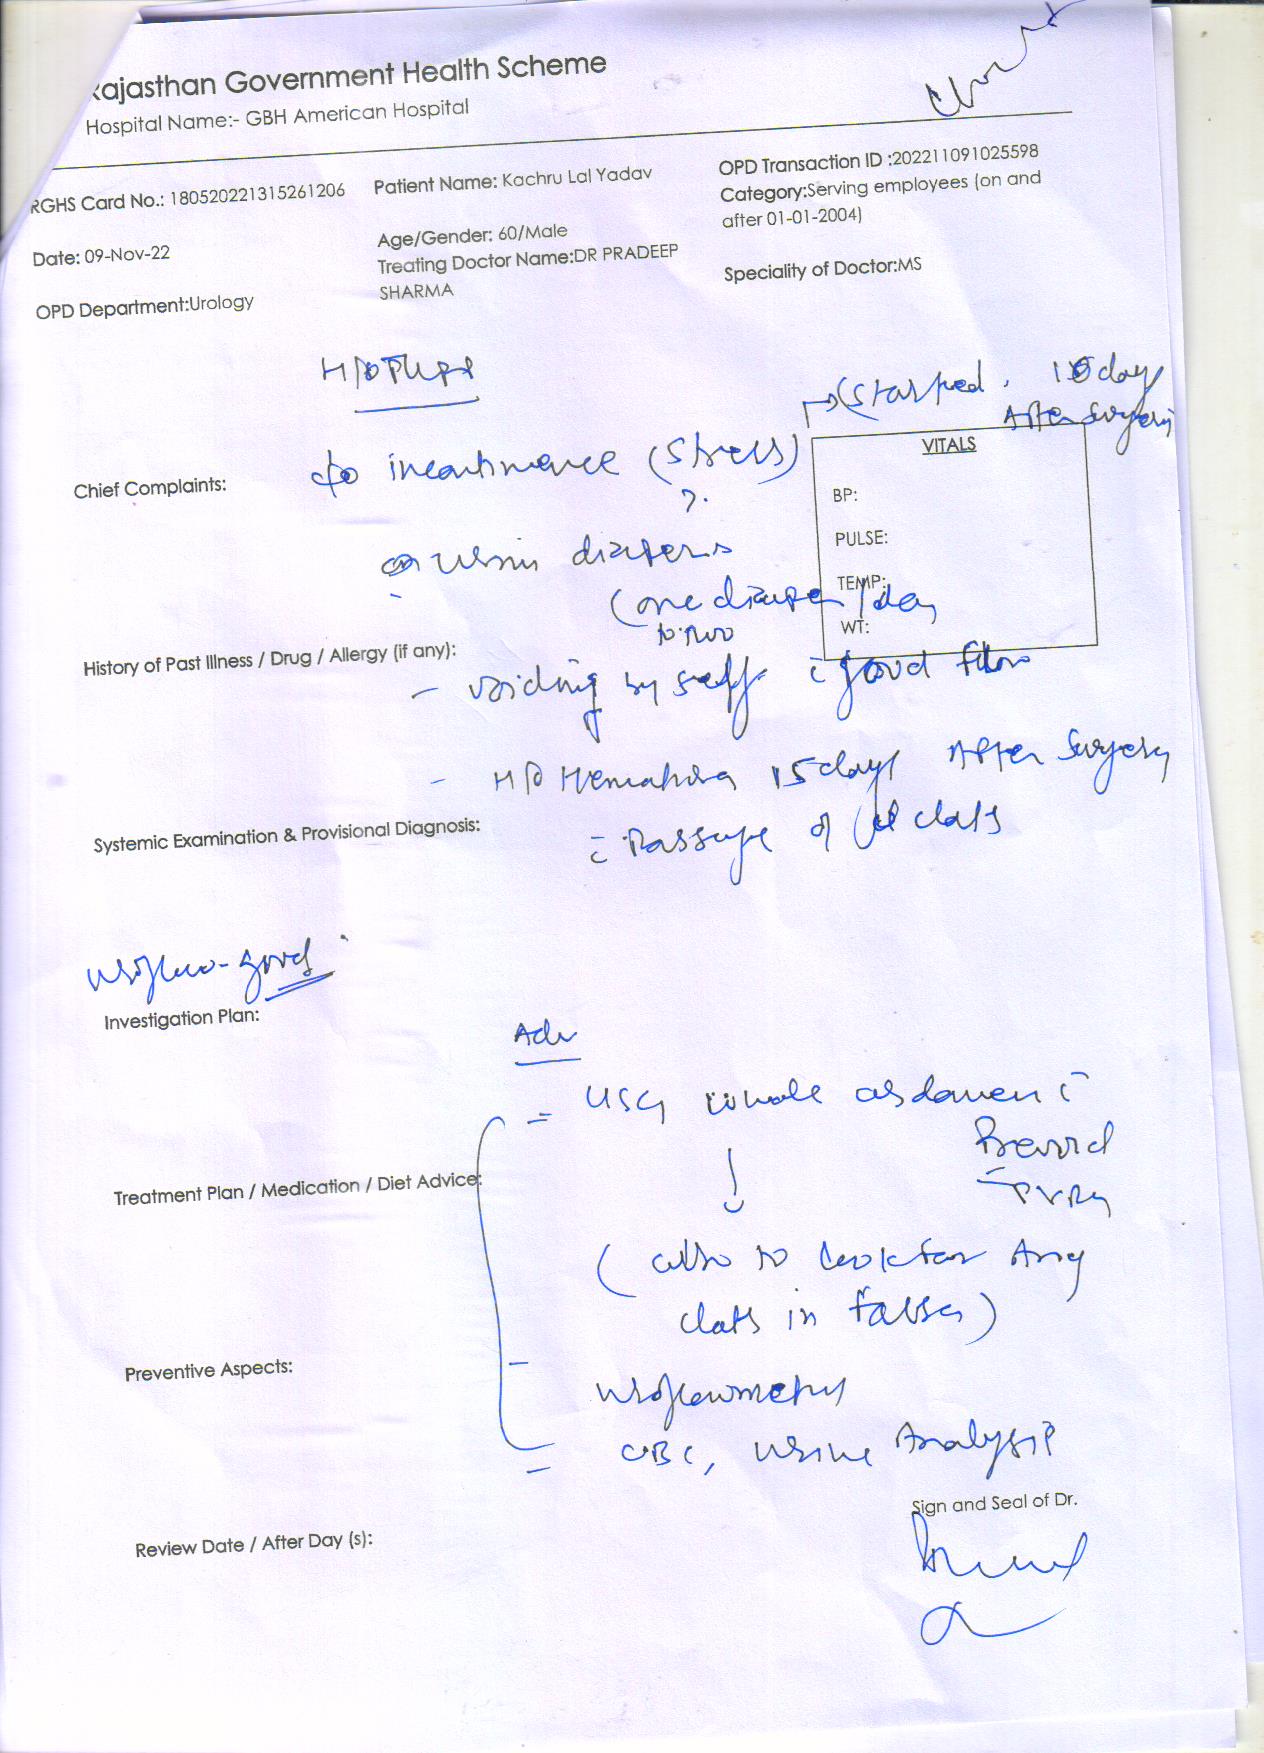 Rajasthan Government Health Scheme
Hospital Name:- GBH American Hospital
RGHS Card No.: 180520221315261206
Patient Name: Kachru Lal Yadav
OPD Transaction ID :202211091025598
Category:Serving employees (on and
after 01-01-2004)
Date: 09-Nov-22
Age/Gender: 60/Male
Treating Doctor Name:DR PRADEEP
SHARMA
Speciality of Doctor:MS
OPD Department:Urology
H/O
(Started
After Surgery
Chief Complaints:
c/o incontinence (stress)
?
VITALS
BP:
PULSE:
TEMP:
WT:
using diapers
(one diaper/day
to two
History of Past Illness / Drug / Allergy (if any):
- voiding by self c good flow
- H/O Hematuria 15 days After Surgery
c Passage of clots
Systemic Examination & Provisional Diagnosis:
Uroflow - good
Investigation Plan:
Adv
USG whole abdomen c
Prevoid
PVRU
Treatment Plan / Medication / Diet Advice:
(also to look for Any
clots in fossa)
Preventive Aspects:
- Uroflowmetry
- CBC, Urine Analysis
Sign and Seal of Dr.
Review Date / After Day (s):